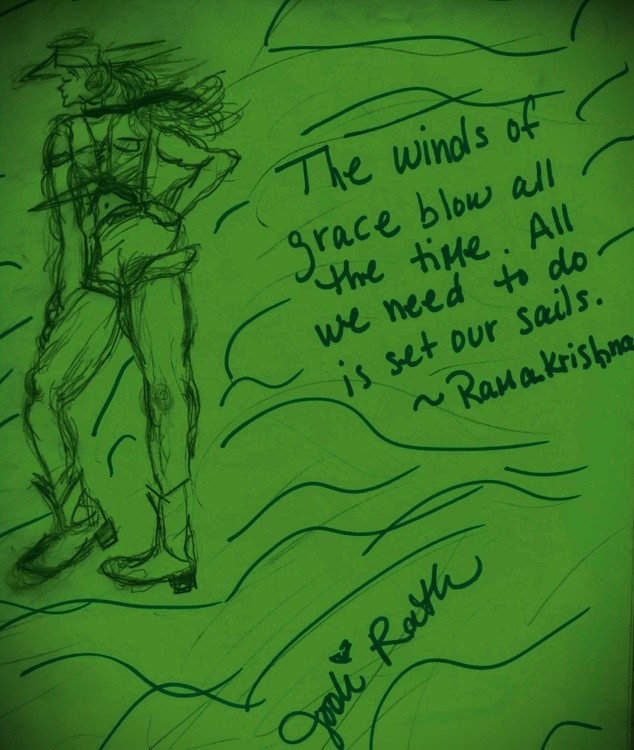 The winds of
grace blow all
the time. All
we need to do
is set our sails.
~ Ramakrishna
Jodi Rath